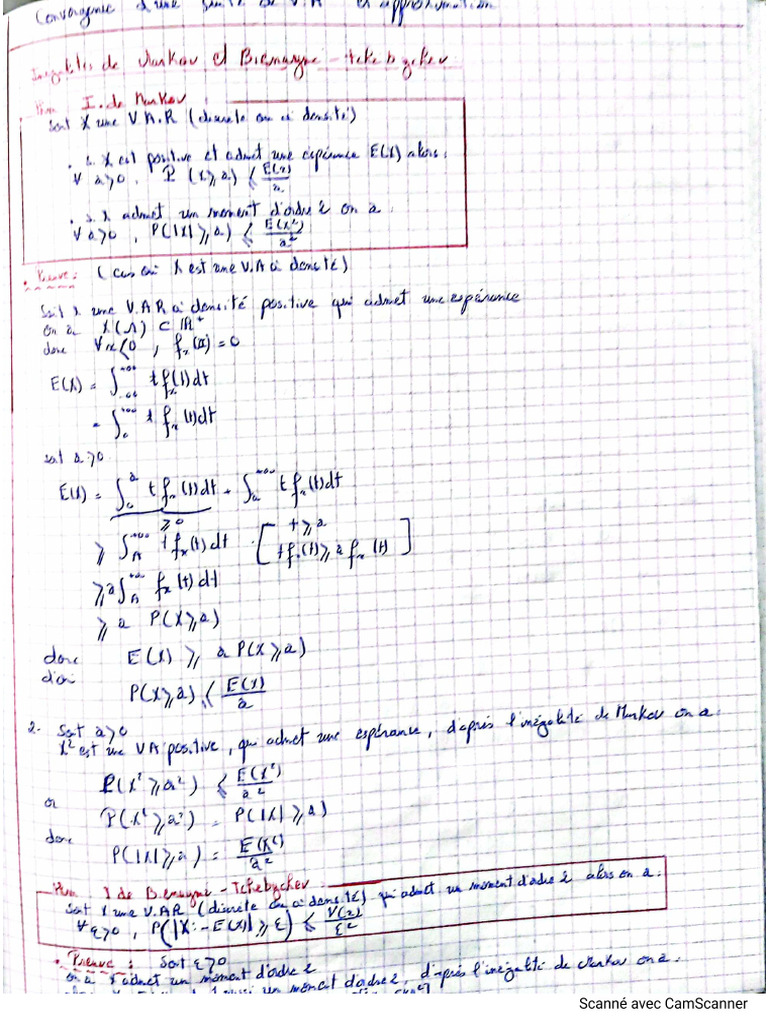 Convergence d'une suite de V.A et approximation
Inégalités de Markov et Bienaymé-tchebychev
Prop I. de Markov
Soit X une V.A.R (discrète ou à densité)
. s. X est positive et admet une espérance E(X) alors:
∀ a>0, P(X⩾a) ⩽ E(X)/a
. s. X admet un moment d'ordre 2 on a.
∀ a>0, P(|X|⩾a) ⩽ E(X²)/a²
Preuve: (cas où X est une V.A à densité)
Soit X une V.A.R à densité positive qui admet une espérance
on a X(Ω) ⊂ ℝ⁺
donc ∀x<0, fx(x) = 0
E(X) = ∫_{-∞}^{+∞} t fx(t)dt
= ∫_0^{+∞} t fx(t)dt
soit a>0
E(X) = ∫_0^a t fx(t)dt + ∫_a^{+∞} t fx(t)dt
⩾0 t⩾a
⩾ ∫_A^{+∞} t fx(t)dt [t fx(t) ⩾ a fx(t)]
⩾ a∫_A^{+∞} fx(t)dt
⩾ a P(X⩾a)
donc E(X) ⩾ a P(X⩾a)
d'où
P(X⩾a) ⩽ E(X)/a
2. Soit a>0
X² est une VA positive, qui admet une espérance, d'après l'inégalité de Markov on a.
P(X²⩾a²) ⩽ E(X²)/a²
or
P(X²⩾a²) = P(|X|⩾a)
donc
P(|X|⩾a) = E(X²)/a²
I de Bienaymé-Tchebychev
Soit X une V.A.R (discrète ou à densité) qui admet un moment d'ordre 2 alors on a.
∀ ε>0, P(|X-E(X)|⩾ε) ⩽ V(x)/ε²
. Preuve: Soit ε>0
on a X admet un moment d'ordre 2
un moment d'ordre 2, d'après l'inégalité de Markov on a.
Scanné avec CamScanner